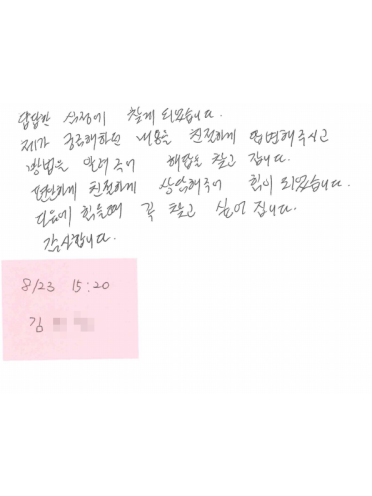 답답한 심정에 찾게 되었습니다.
제가 궁금해하던 내용을 친절하게 답변해주시고
방법을 알려주어 해답을 찾고 갑니다.
편안하게 친절하게 상담해주어 힘이 되었습니다.
다음에 힘들때 꼭 찾고 싶어 집니다.
감사합니다.
8/23 15:20
김